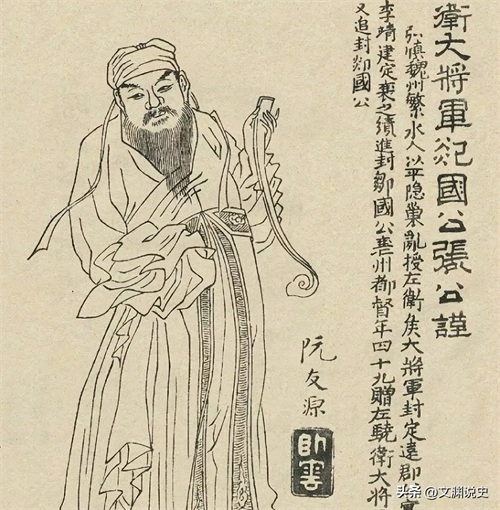 衛大將軍郯國公張公謹
弘慎魏州繁水人以平隱巢亂授左衛矦大將軍封定遠郡
李靖建定襄之績進封鄒國公襄州都督年四十九贈左驍衛大將
又追封郯國公
阮友源
头条 @文渊说史